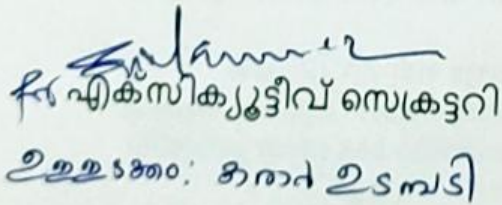 for എക്സിക്യൂട്ടീവ് സെക്രട്ടറി
ഉള്ളടക്കം: കരാർ ഉടമ്പടി